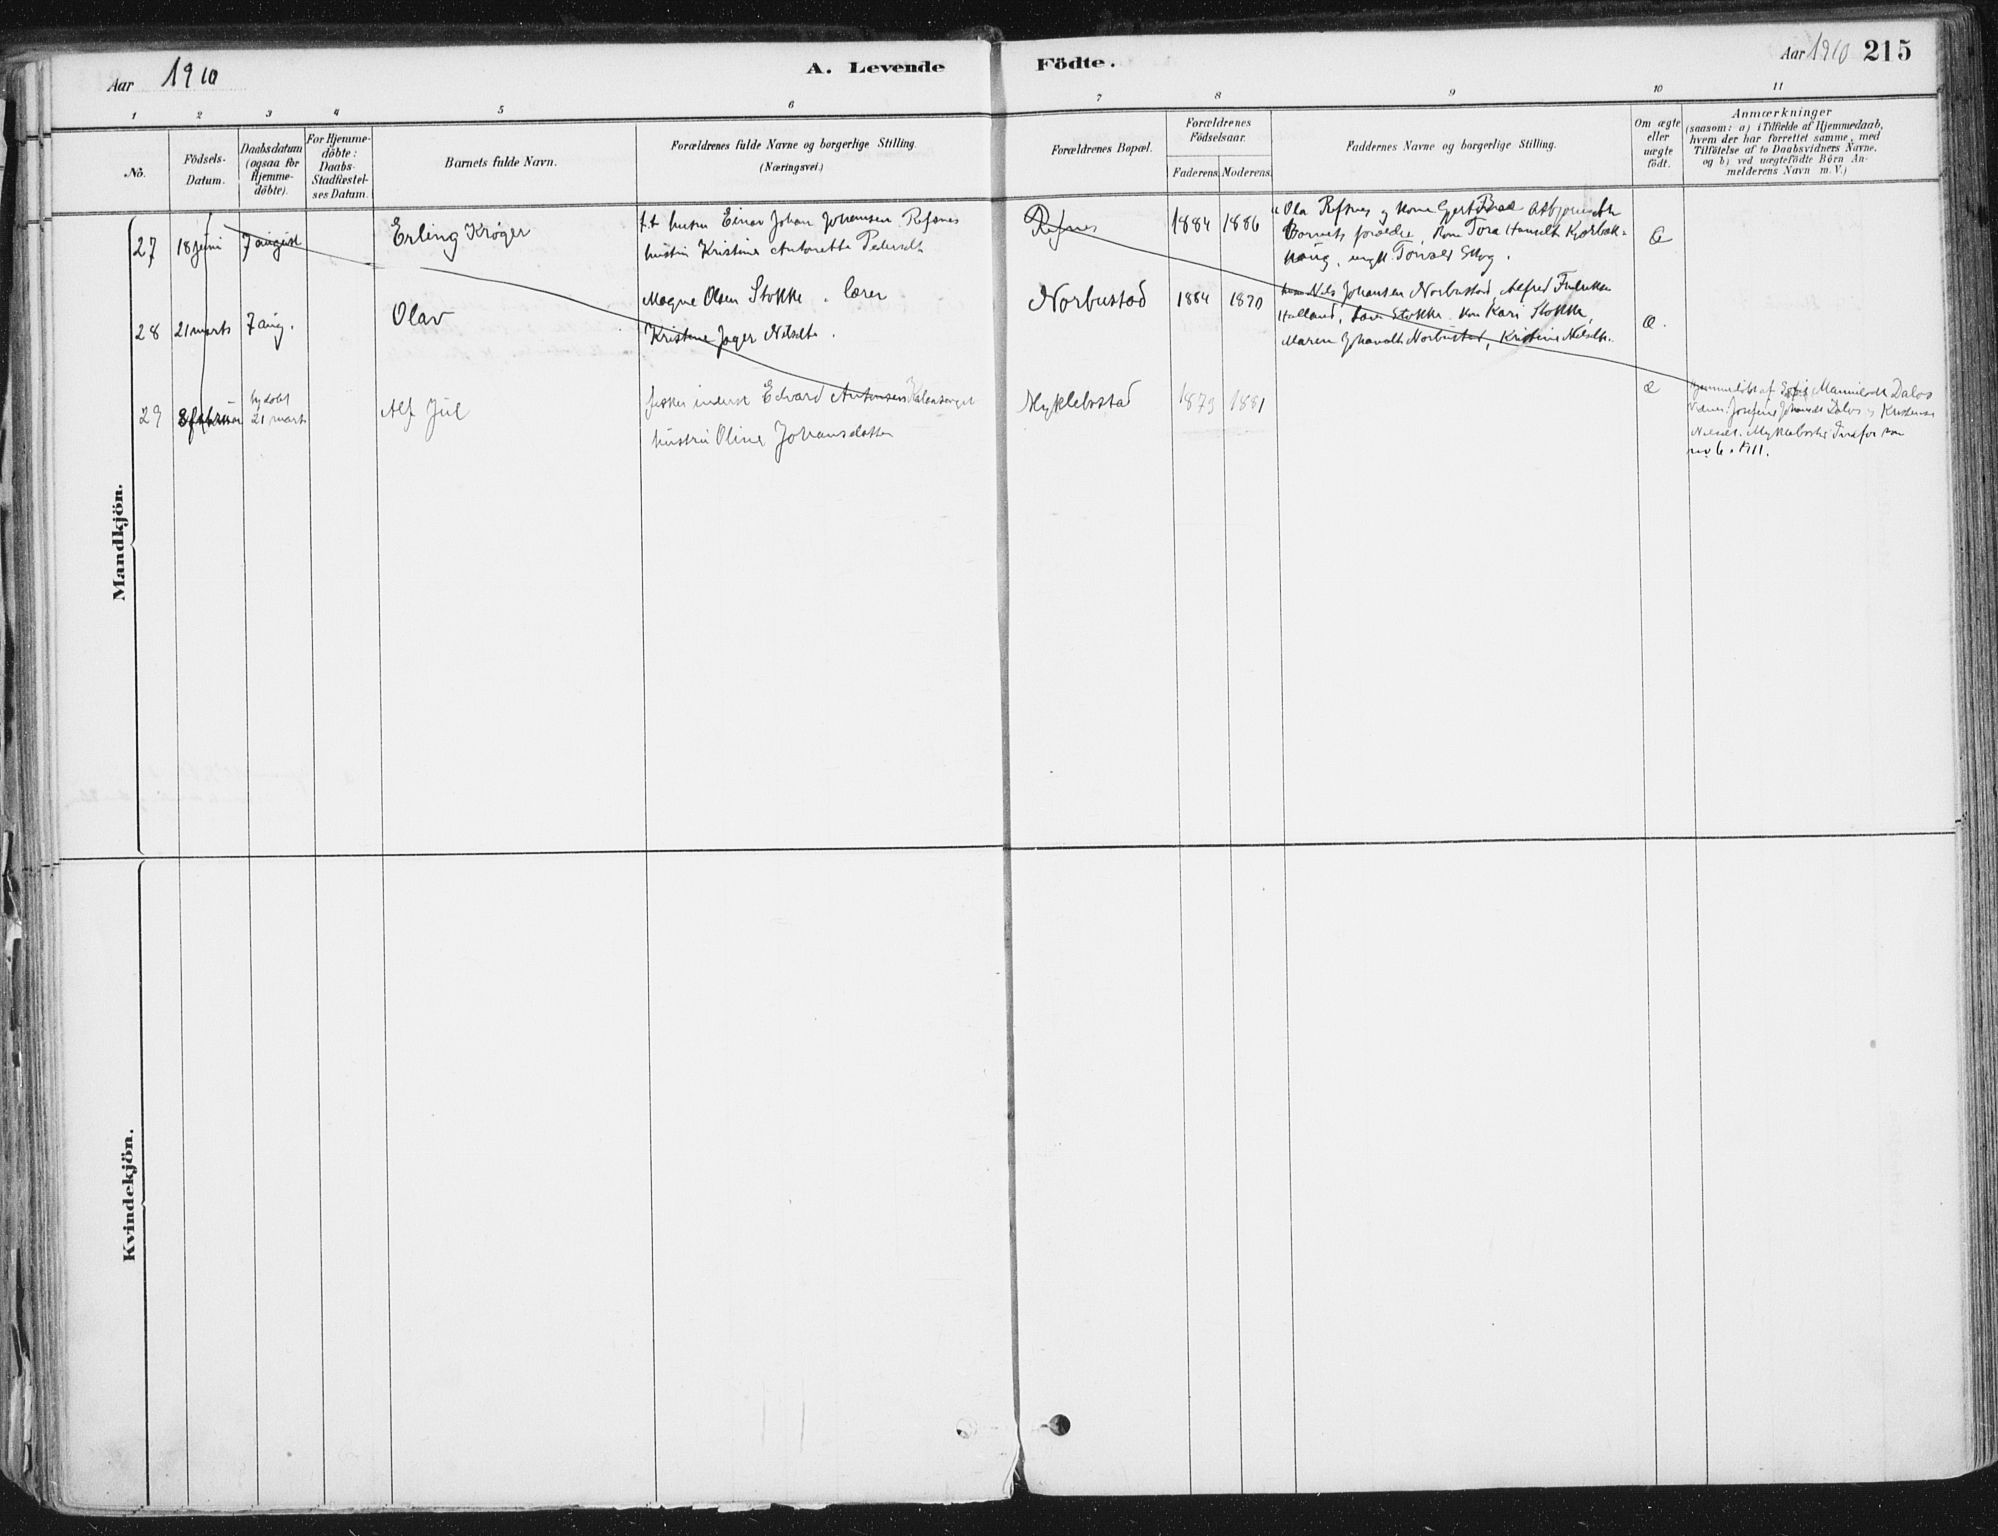 Aar 1910
A. Levende Födte.
Aar 1910 215
1 2 3 4 5 6 7 8 9 10 11
No.
Födsels-Datum.
Daabsdatum (ogsaa for Hjemme-döbte).
For Hjemme-döbte: Daabs-Stadfæstel-ses Datum.
Barnets fulde Navn.
Forældrenes fulde Navne og borgerlige Stilling.
(Næringsvei.)
Forældrenes Bopæl.
Forældrenes Födselsaar.
Faderens. Moderens.
Faddernes Navne og borgerlige Stilling.
Om ægte eller uægte födt.
Anmærkninger
(saasom: a) i Tilfælde af Hjemmedaab,
hvem der har forrettet samme, med
Tilföielse af to Daabsvidners Navne,
og b) ved uægtefödte Börn An-
melderens Navn m. V.)
Mandkjön.
27 18 juni 7 august Erling Krøger
Einar Johan Johansen Refsnes
hustru Kristine Antonette Pedersdt
Refsnes 1884 1886
Ola Refsnes og Kone
Barnets forældre, Kone Tora Hansdt
Æ
28 21 marts 7 aug. Olav
Magne Olsen Stokke. lærer
Kristine Jager Nilsdt.
Norbustad 1884 1870
Nils Johansen Norbustad, Alfred
Stokke. Kari Stokke,
Maren Norbustad, Kristine Nilsdt.
Æ.
29 21 marts Alf Jul
Edvard Antonsen
hustru Oline Johansdatter
Myklebostad 1879 1881
æ
hjemmedøbt af Dalos
Josefine Dalos og
no 6. 1911.
Kvindekjön.